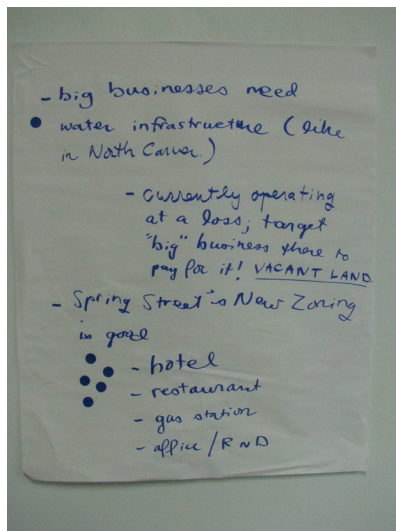 - big businesses need
water infrastructure (like
in North Carver.)
- currently operating
at a loss; target
"big" business there to
pay for it! VACANT LAND
- Spring Street's New Zoning
is good
- hotel
- restaurant
- gas station
- office/RND